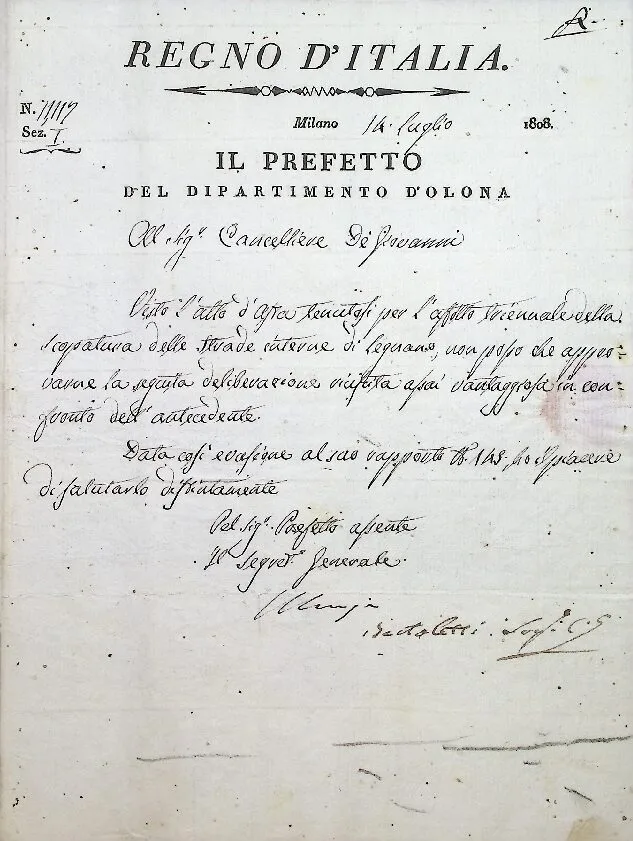 R.
REGNO D'ITALIA.
N. 11117
Sez. I.
Milano 14. luglio 1808.
IL PREFETTO
DEL DIPARTIMENTO D'OLONA
Al Sig.r Cancelliere De Giovanni
Visto l'atto d'Asta tenutosi per l'affitto triennale della
scopatura delle strade interne di Legnano, non posso che appro-
varne la seguita deliberazione riuscita assai vantaggiosa in con-
fronto dell'antecedente.
Data così evasione al suo rapporto N. 145, ho il piacere
di salutarlo distintamente
Pel Sig.r Prefetto assente
Il Segret.o Generale.
Bartoletti